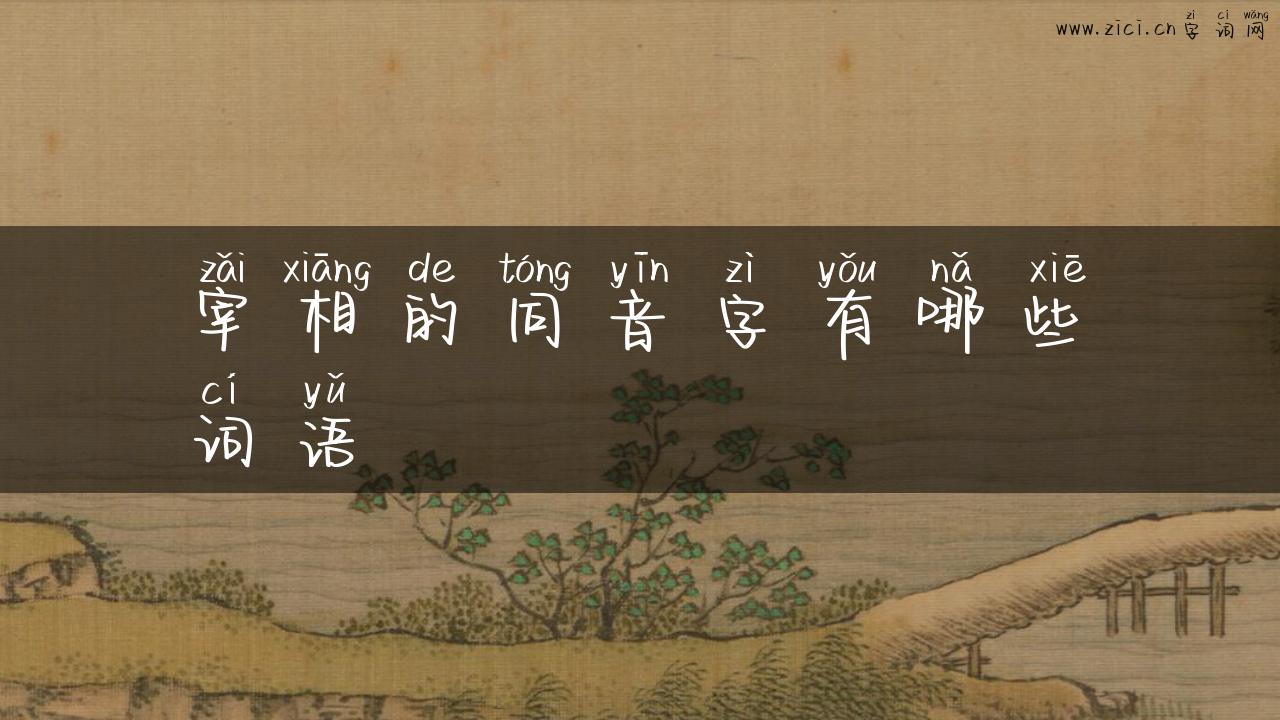 zì cí wǎng
www.zici.cn 字词网
zǎi xiāng de tóng yīn zì yǒu nǎ xiē
宰相的同音字有哪些
cí yǔ
词语